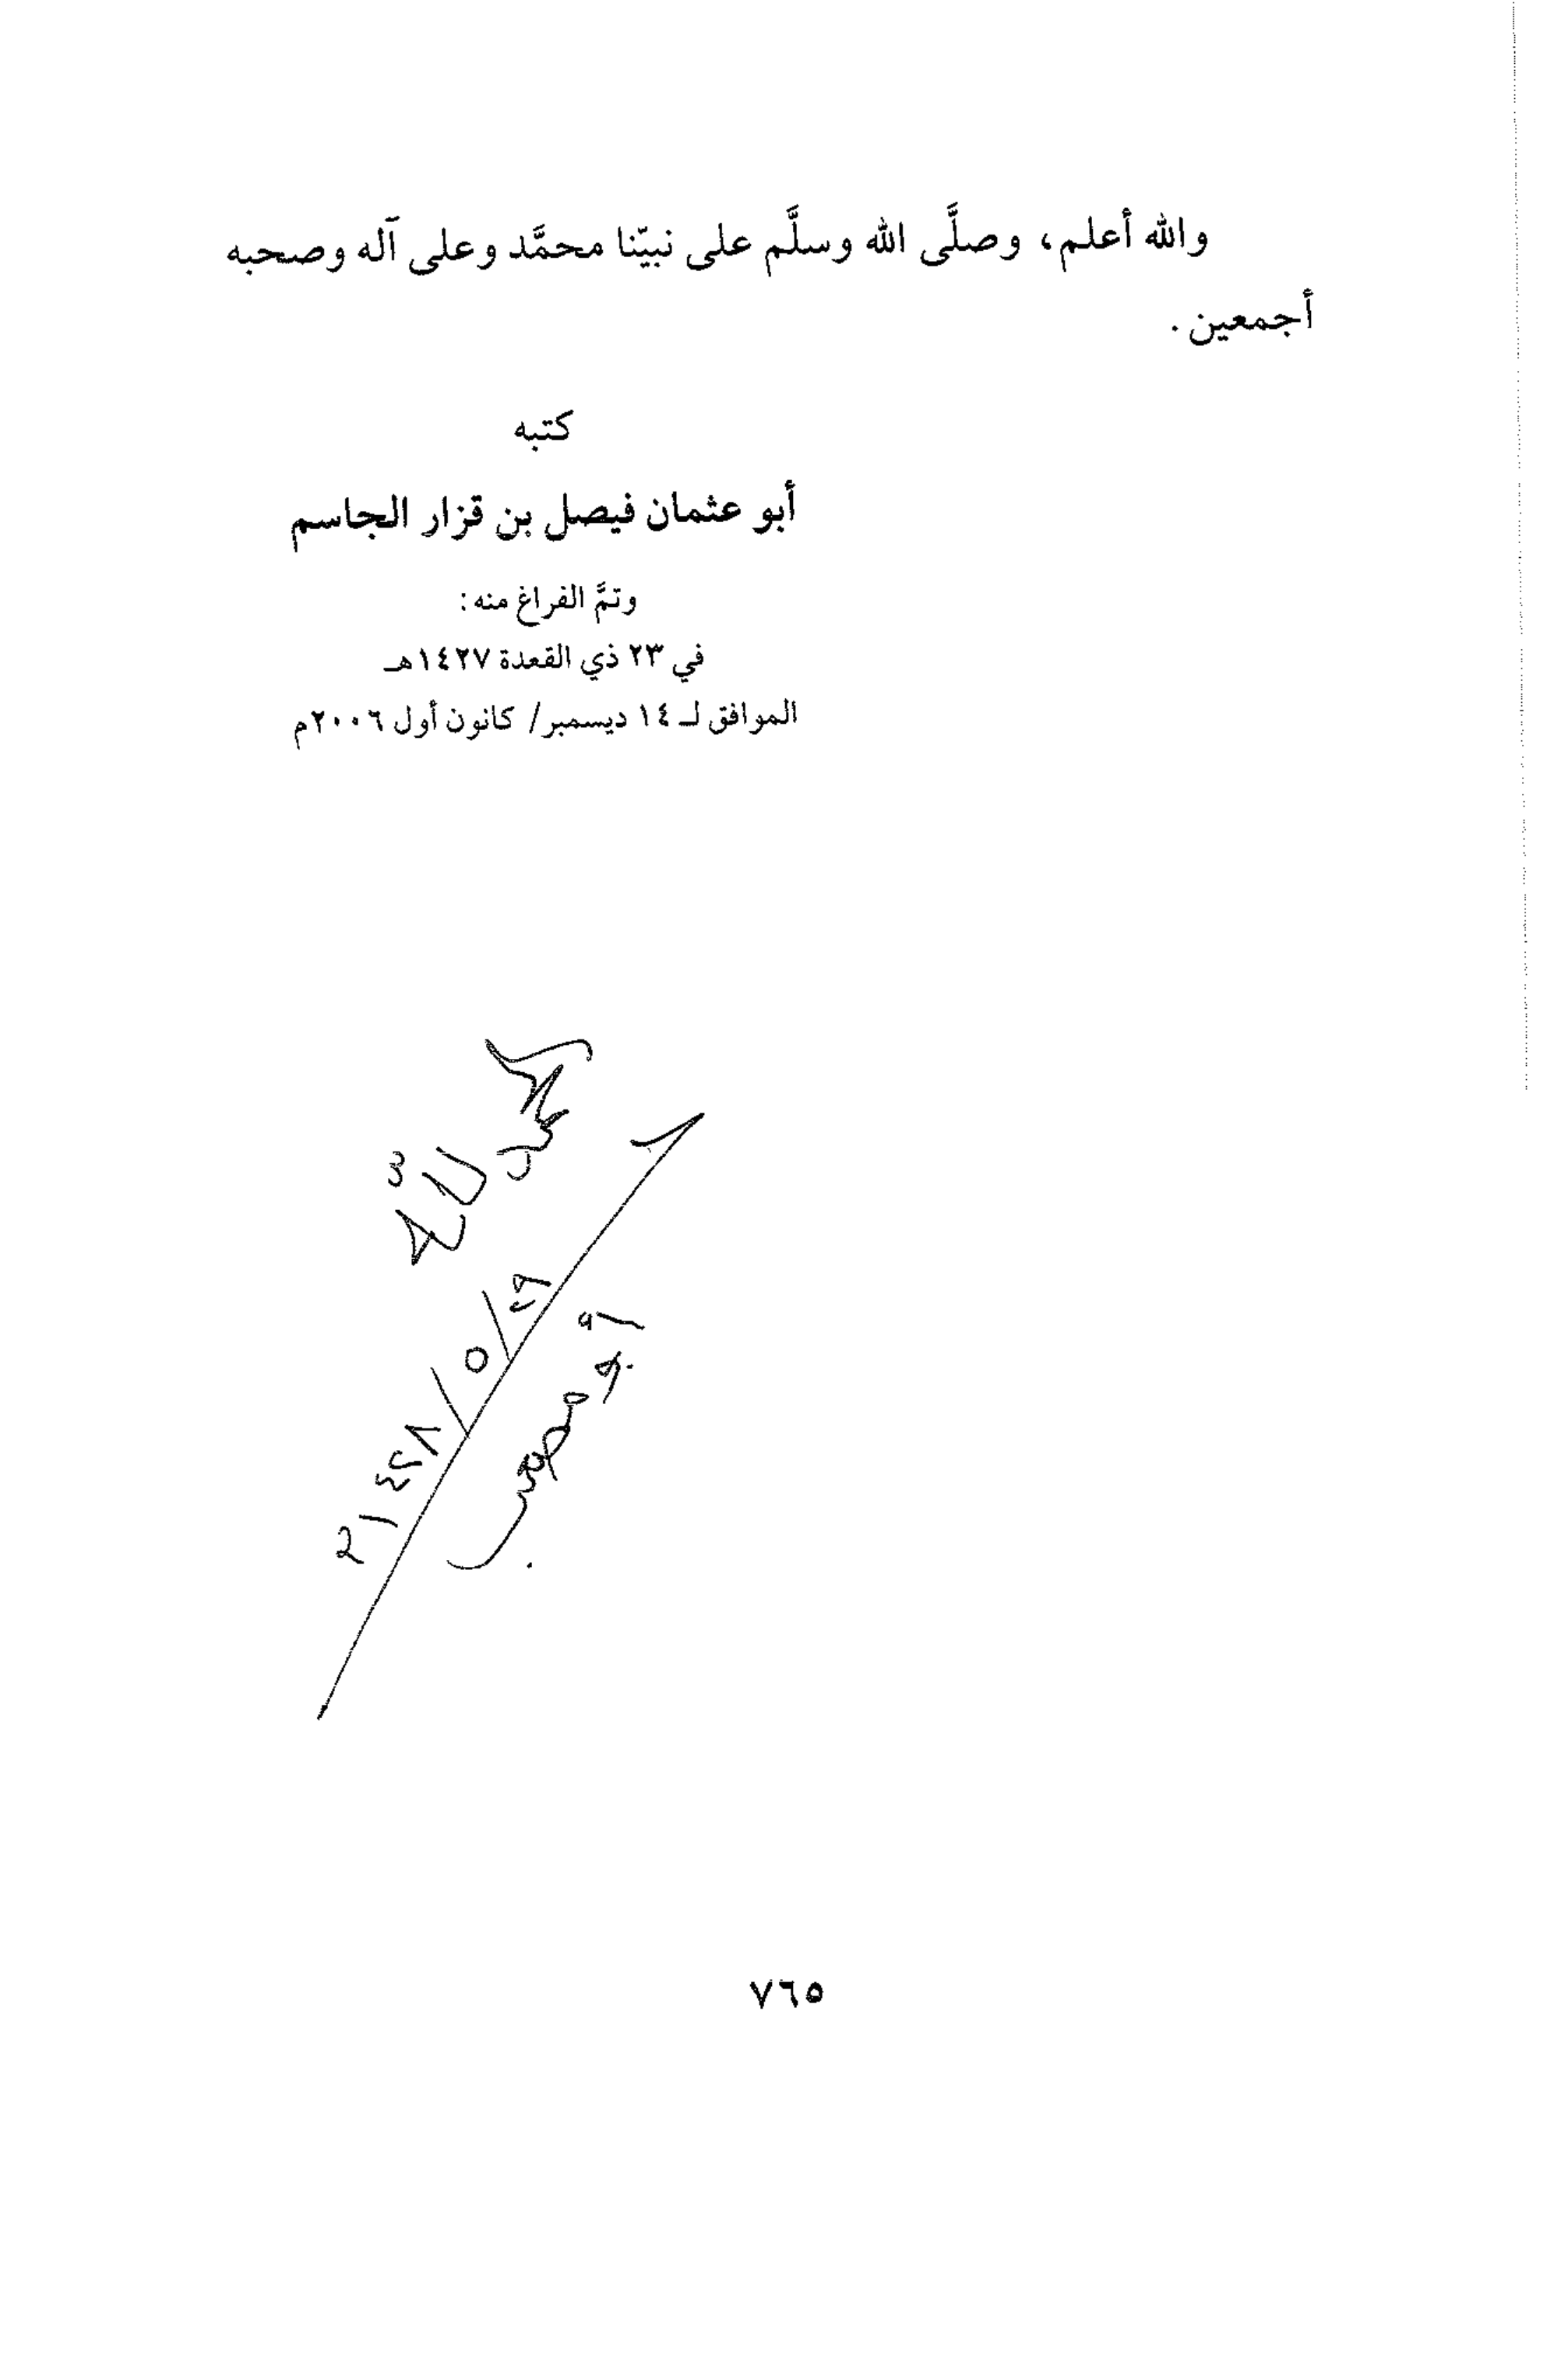 والله أعلم، وصلَّى الله وسلَّم على نبيّنا محمَّد وعلى آله وصحبه
أجمعين.
كتبه
أبو عثمان فيصل بن قزار الجاسم
وتمَّ الفراغ منه:
في ٢٣ ذي القعدة ١٤٢٧هـ
الموافق لـ ١٤ ديسمبر/ كانون أول ٢٠٠٦م
الحمد لله
٢٩/٥/١٤٢٨
أبو مصعب
٧٦٥